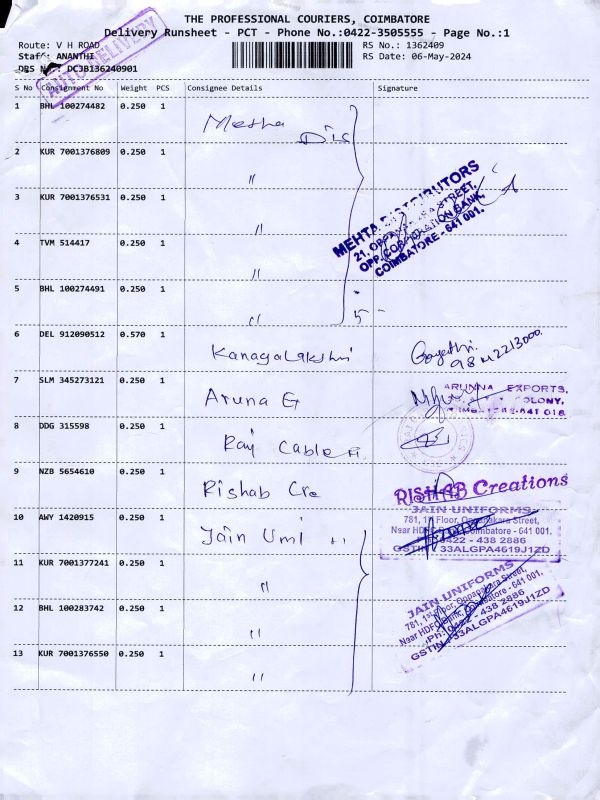 THE PROFESSIONAL COURIERS, COIMBATORE
Delivery Runsheet - PCT - Phone No.:0422-3505555 - Page No.:1
Route: V H ROAD
RS No.: 1362409
Staff: ANANTHI
RS Date: 06-May-2024
DRS No.: DCJB136240901
AUTO DELIVERY
S No Consignment No Weight PCS Consignee Details Signature
1 BHL 100274482 0.250 1 Metha Dis
2 KUR 7001376809 0.250 1 "
3 KUR 7001376531 0.250 1 "
4 TVM 514417 0.250 1 "
5 BHL 100274491 0.250 1 " 5 -
MEHTA DISTRIBUTORS
21, OPPANAKARA STREET,
OPP. CORPORATION BANK,
COIMBATORE - 641 001.
6 DEL 912090512 0.570 1 Kanagalakshmi Gayathri.
7 SLM 345273121 0.250 1 Aruna E
ARUNNA EXPORTS,
COLONY,
8 DDG 315598 0.250 1 Raj Cable
9 NZB 5654610 0.250 1 Rishab Cre
RISHAB Creations
10 AWY 1420915 0.250 1 Jain Uni
JAIN UNIFORMS
781, 1st Floor, Oppanakara Street,
Near HDFC Bank, Coimbatore - 641 001.
Ph: 0422 - 438 2886
GSTIN : 33ALGPA4619J1ZD
11 KUR 7001377241 0.250 1 "
12 BHL 100283742 0.250 1 "
13 KUR 7001376550 0.250 1 "
JAIN UNIFORMS
781, 1st Floor, Oppanakara Street,
Near HDFC Bank, Coimbatore - 641 001.
Ph: 0422 - 438 2886
GSTIN : 33ALGPA4619J1ZD